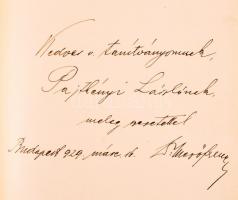 Kedves v. tanítványomnak,
Pajthényi Lászlónak,
meleg szeretettel
Budapest 929. márc. 16. Dr.